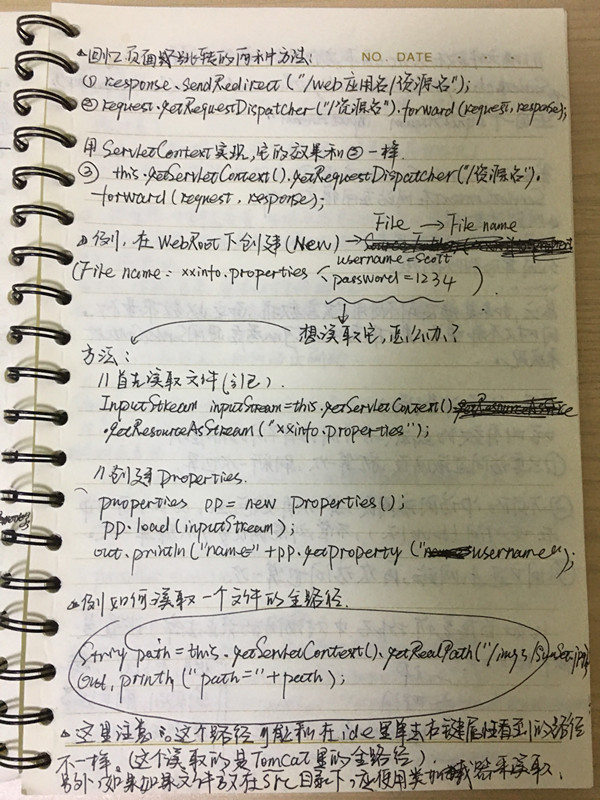 NO. DATE
回忆页面跳转的两种方法:
① response.sendRedirect("/web应用名/资源名");
② request.getRequestDispatcher("/资源名").forward(request, response);
用ServletContext实现,它的效果和②一样.
③ this.getServletContext().getRequestDispatcher("/资源名").
forward(request, response);
File → File name
例,在WebRoot下创建(New) →
username=Scott
(File name: xxinfo.properties
password=1234 )
想读取它,怎么办?
方法:
//首先读取文件(引包).
InputStream inputStream=this.getServletContext()
.getResourceAsStream("xxinfo.properties");
//创建properties.
properties pp= new Properties();
pp.load(inputStream);
out.println("name=" +pp.getProperty ("username");
例 如何读取一个文件的全路径.
String path=this.getServletContext().getRealPath("/imgs/
out.println("path="+path);
这里注意:这个路径可能和在ide里单击右键属性看到的路径
不一样。(这个读取的是Tomcat里的全路径).
另外,如果文件放在src目录下,应使用类加载器来读取.